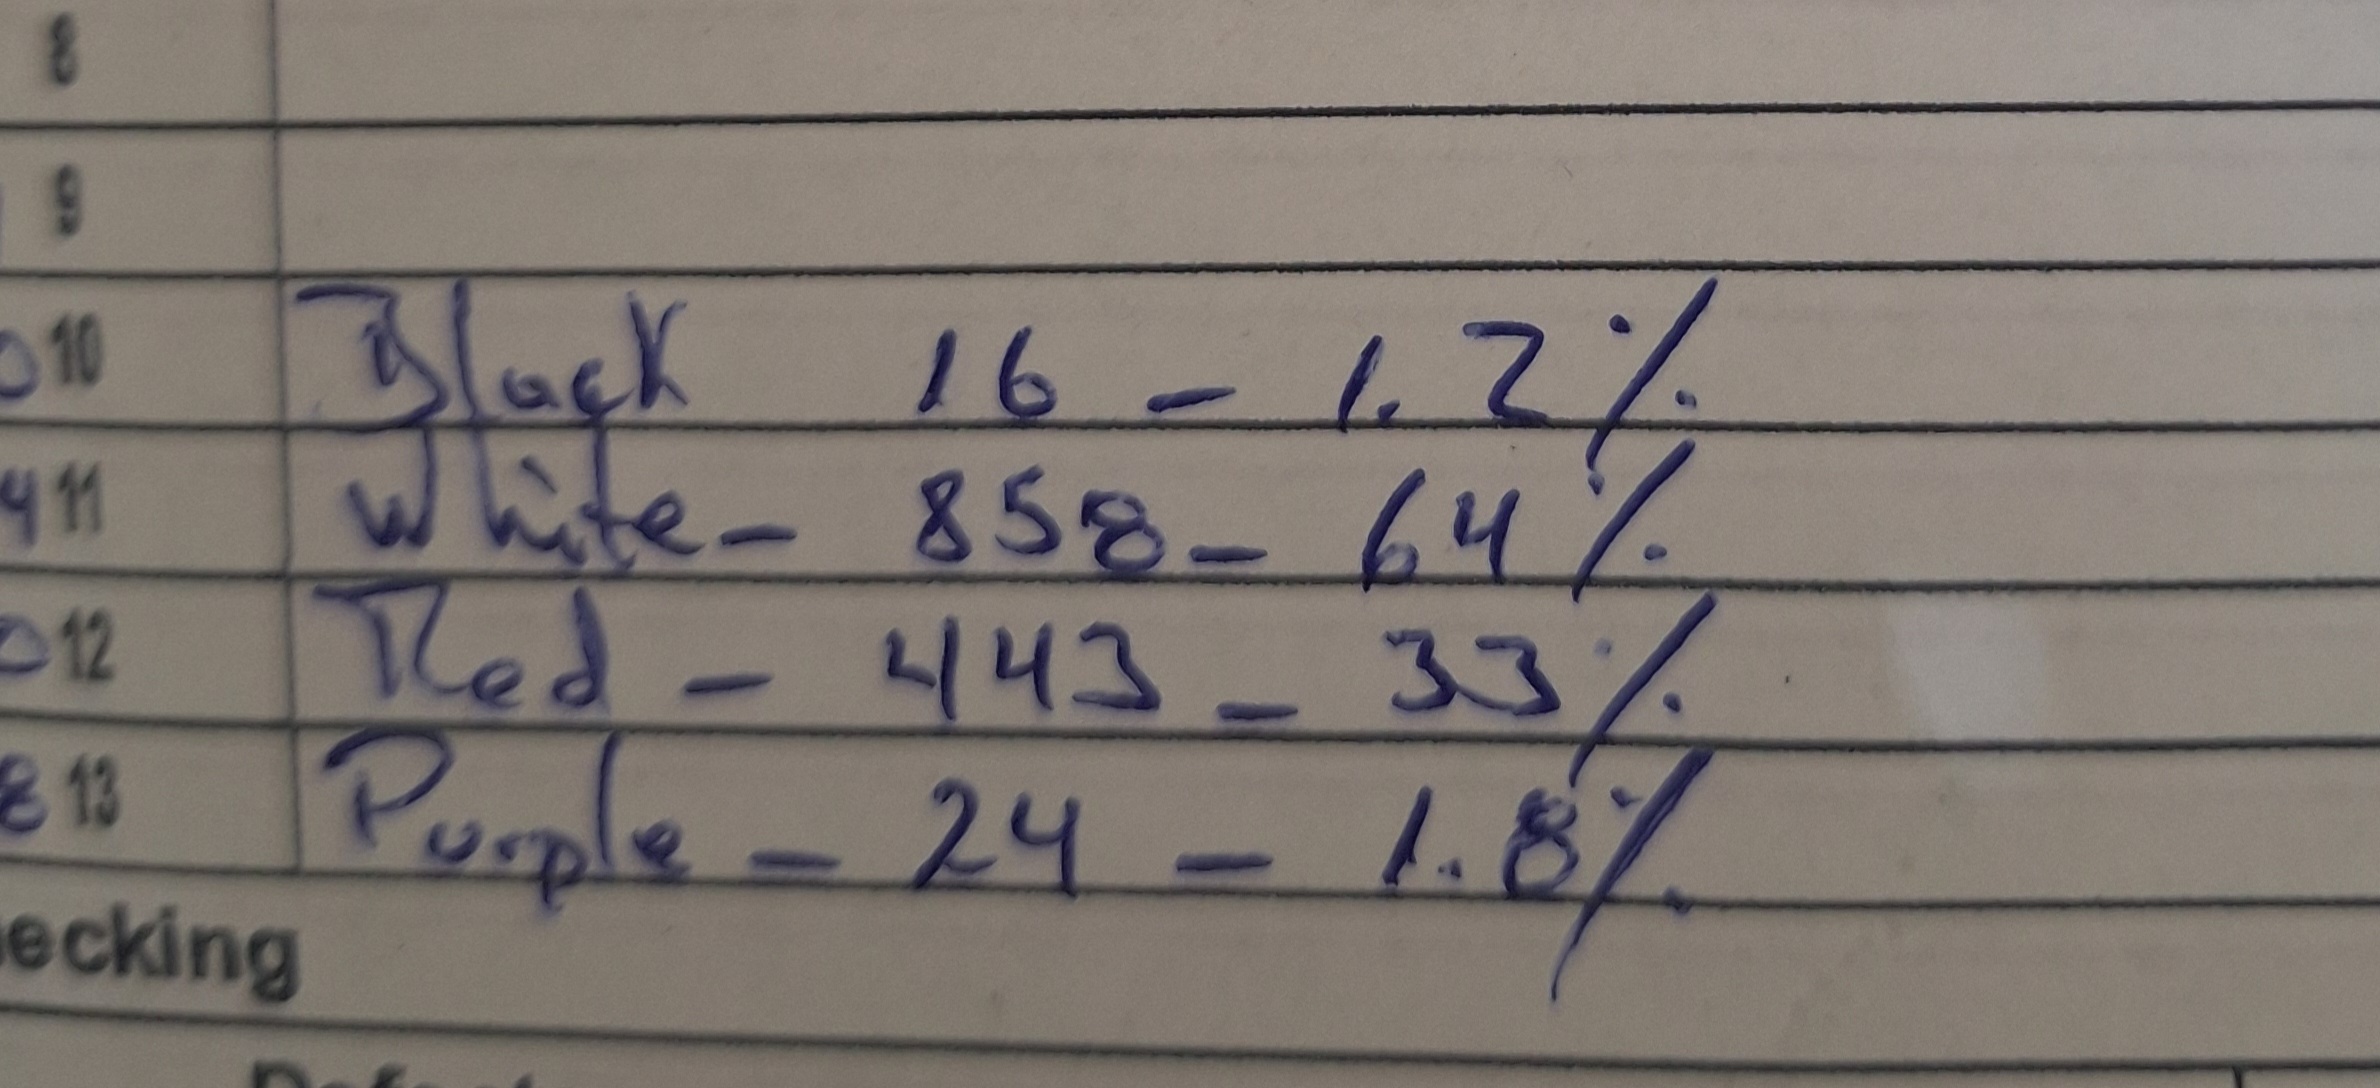 8
9
10 Black 16 - 1.2%
11 White - 858 - 64%
12 Red - 443 - 33%
8 13 Purple - 24 - 1.8%
ecking